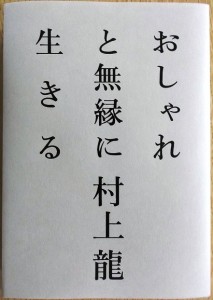 おしゃれ
と無縁に 村上龍
生きる